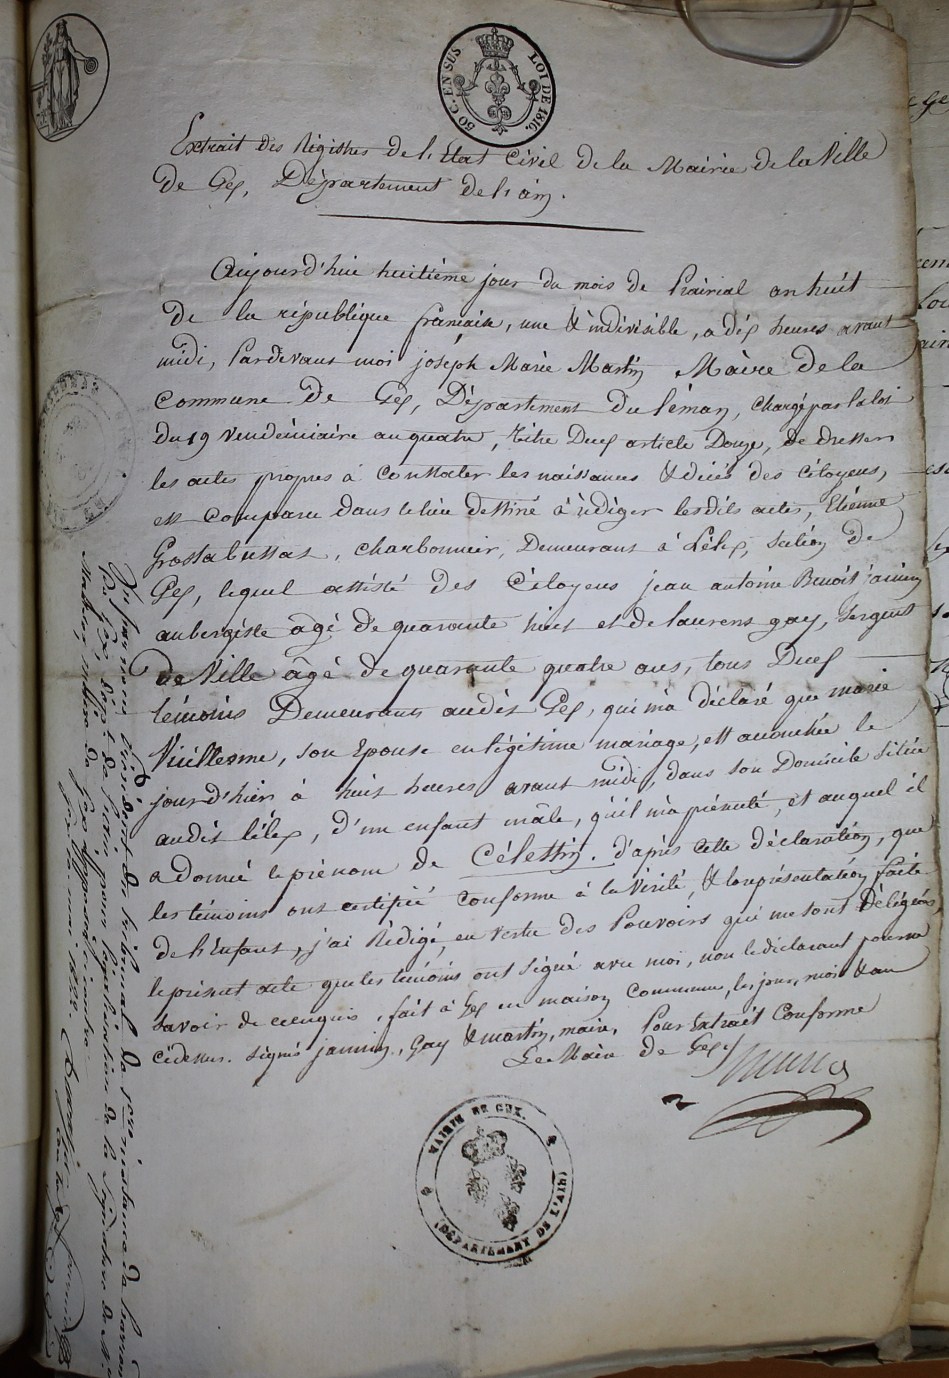 50 C. EN SUS LOI DE 1816.
Extrait des Régistres de l'Etat Civil de la Mairie de la Ville
de Gex, Département de l'ain.
Aujourd'hui huitième jour du mois de Prairial an huit
de la république française, une & indivisible, a dix heures avant
midi, Pardevant moi joseph Marie Martin Maire de la
Commune de Gex, Département du Léman, chargé par la loi
du 19 Vendémiaire an quatre, titre Deux article Douze, de dresser
les actes propres à Constater les naissances & décès des citoyens,
est comparu dans le lieu destiné à rédiger lesdits actes, Etienne
Grostabussiat, charbonnier, Demeurant à Lélex, section de
Gex, lequel assisté des Citoyens jean antoine Benoit jannin
aubergiste âgé de quarante huit et de laurent gay, Sergent
de Ville âgé de quarante quatre ans, tous Deux
témoins Demeurants audit Gex, qui m'a déclaré que marie
Vuillerme, son Epouse en légitime mariage, est accouchée le
jour d'hier à huit heures avant midi, dans son Domicile située
audit Lélex, d'un enfant mâle, qu'il m'a présenté, et auquel il
a donné le prénom de Célestin. d'après cette déclaration, que
les témoins ont certifié conforme à la Vérité, & la représentation faite
de l'Enfant, j'ai Rédigé, en vertu des Pouvoirs qui me sont Délégués,
le présent acte que les témoins ont Signé avec moi, non le déclarant pour ne
Savoir de ce enquis, fait à Gex en maison Commune, les jour, mois & an
cidessus. Signés jannin, Gay & martin, maire, Pour Extrait Conforme
Le Maire de Gex
MAIRIE DE GEX.
(DÉPARTEMENT DE L'AIN)
Vu par nous Président du tribunal de 1ère instance de
de Gex, Dépt de l'ain, pour légalisation de la Signature de Mr
maire de